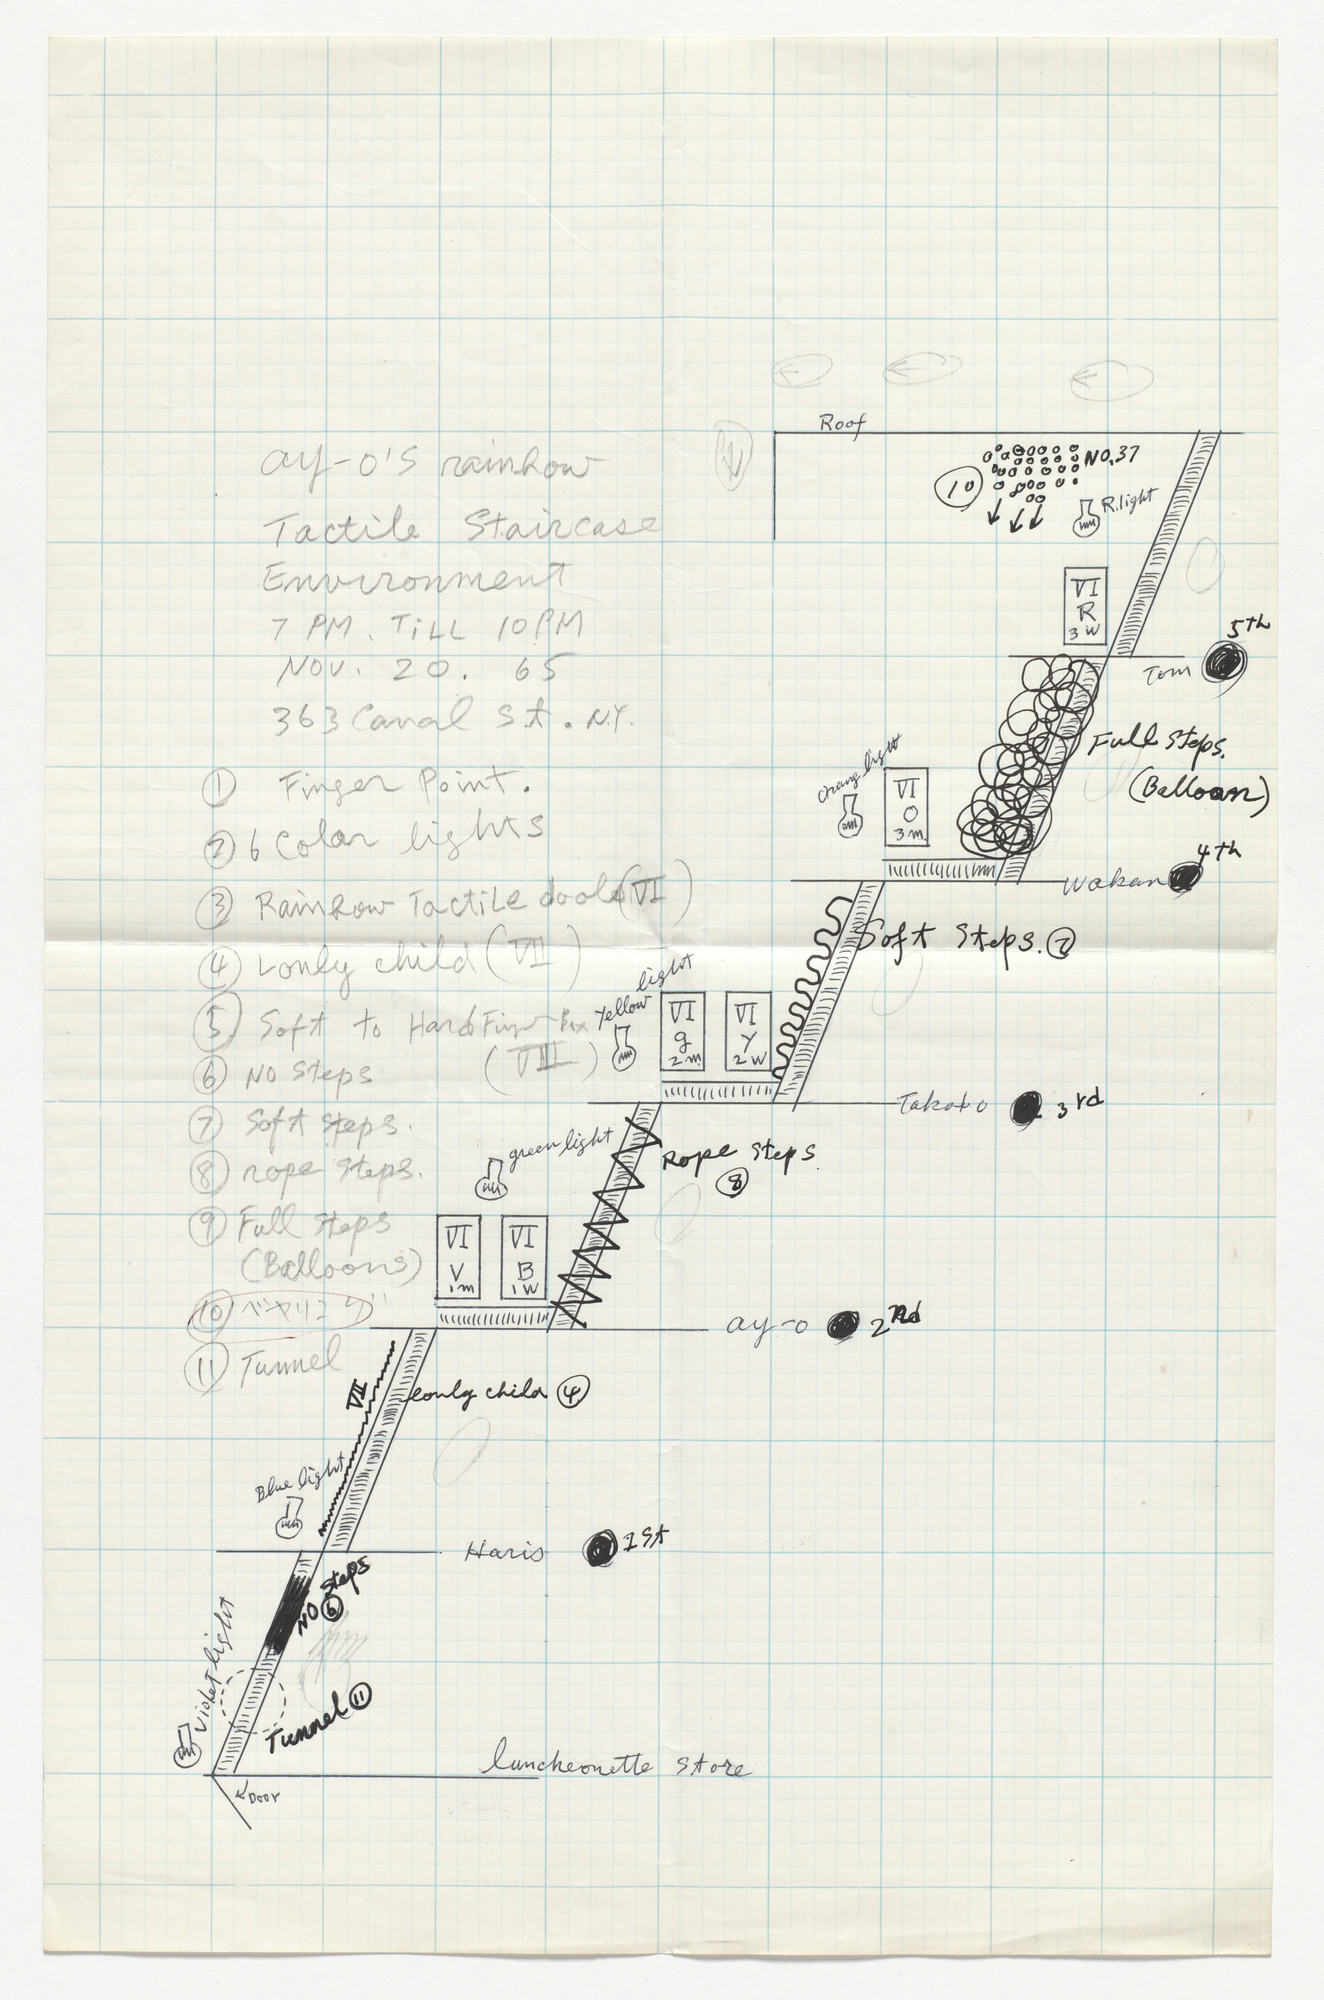 ay-o's rainbow
Tactile Staircase
Environment
7 PM. TiLL 10PM
NOV. 20. 65
363 Canal St. N.Y.
① Finger Point.
② 6 Color lights
③ Rainbow Tactile doole (VI)
④ Lonly child (VII)
⑤ Soft to Hard Finger Box
(VIII)
⑥ NO Steps
⑦ Soft Steps.
⑧ rope steps.
⑨ Full Steps
(Balloons)
⑩
⑪ Tunnel
Roof
⑩
NO.37
R.light
VI
R
3 W
5th
Tom
Full Steps.
(Balloon)
Orang light
VI
O
3 m
4th
Soft Steps. ⑦
Yellow light
VI
g
2 m
VI
Y
2 W
Takato
3rd
Rope Steps
⑧
green light
VI
V
1 m
VI
B
1 W
ay-o
2nd
VII
Lonly child ④
Blue light
Haris
1st
NO Steps
⑥
Violet light
Tunnel ⑪
luncheonette store
Door